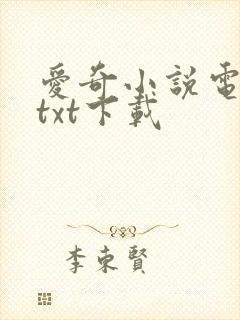 愛奇小說電
txt下載
李東賢